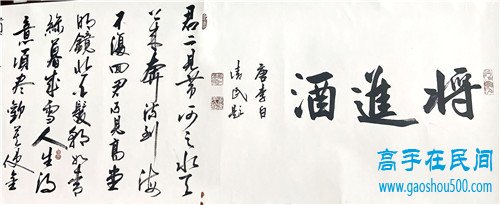 将進酒
唐李白
清民題
君不見黄河之水天
上來奔流到海
不復回君不見高堂
明鏡悲白髮朝如青
絲暮成雪人生得
意須盡歡莫使金
高手在民间
www.gaoshou500.com